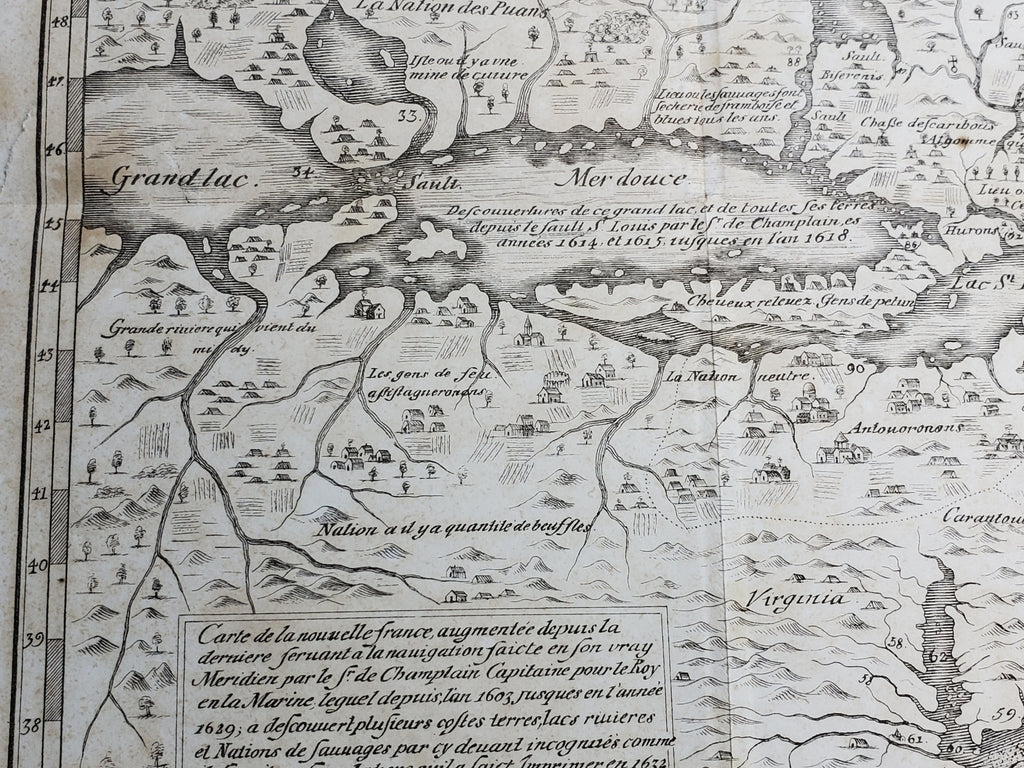 La Nation des Puans
Isle ou il y a vne
mine de cuiure
33.
Lieu ou les sauuages font
secherie de framboise et
blues tous les ans.
88
Sault
Biserenis
Sault
Chasse des caribous
Algomme
83
47
48
47
46
45
44
43
42
41
40
39
38
Grand lac.
34
Sault.
Mer douce
Descouuertures de ce grand lac, et de toutes ses terres
depuis le sault St. Louis par le Sr. de Champlain, es
années 1614. et 1615. iusques en l'an 1618.
Lieu
Hurons
86
Lac St.
Cheueux releuez
Gens de petun
Grande riuiere qui vient du
midy.
Les gens de feu
assistagueronons
La Nation neutre
90
Antouoronons
Nation a il y a quantite de beuffles
Carantou
Virginia
58
62
51
59
61
60
Carte de la nouuelle france, augmentée depuis la
derniere seruant a la nauigation faicte en son vray
Meridien par le Sr. de Champlain Capitaine pour le Roy
en la Marine, lequel depuis l'an 1603 jusques en l'année
1629; a descouuert plusieurs costes terres, lacs riuieres
et Nations de sauuages par cy deuant incognuës comme
Imprimer en 1632